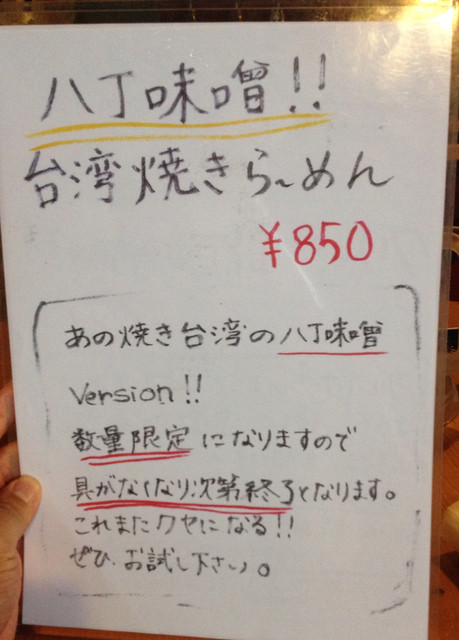 八丁味噌!!
台湾焼きら~めん
¥850
あの焼き台湾の八丁味噌
Version!!
数量限定になりますので
具がなくなり次第終了となります。
これまたクセになる!!
ぜひ、お試し下さい。